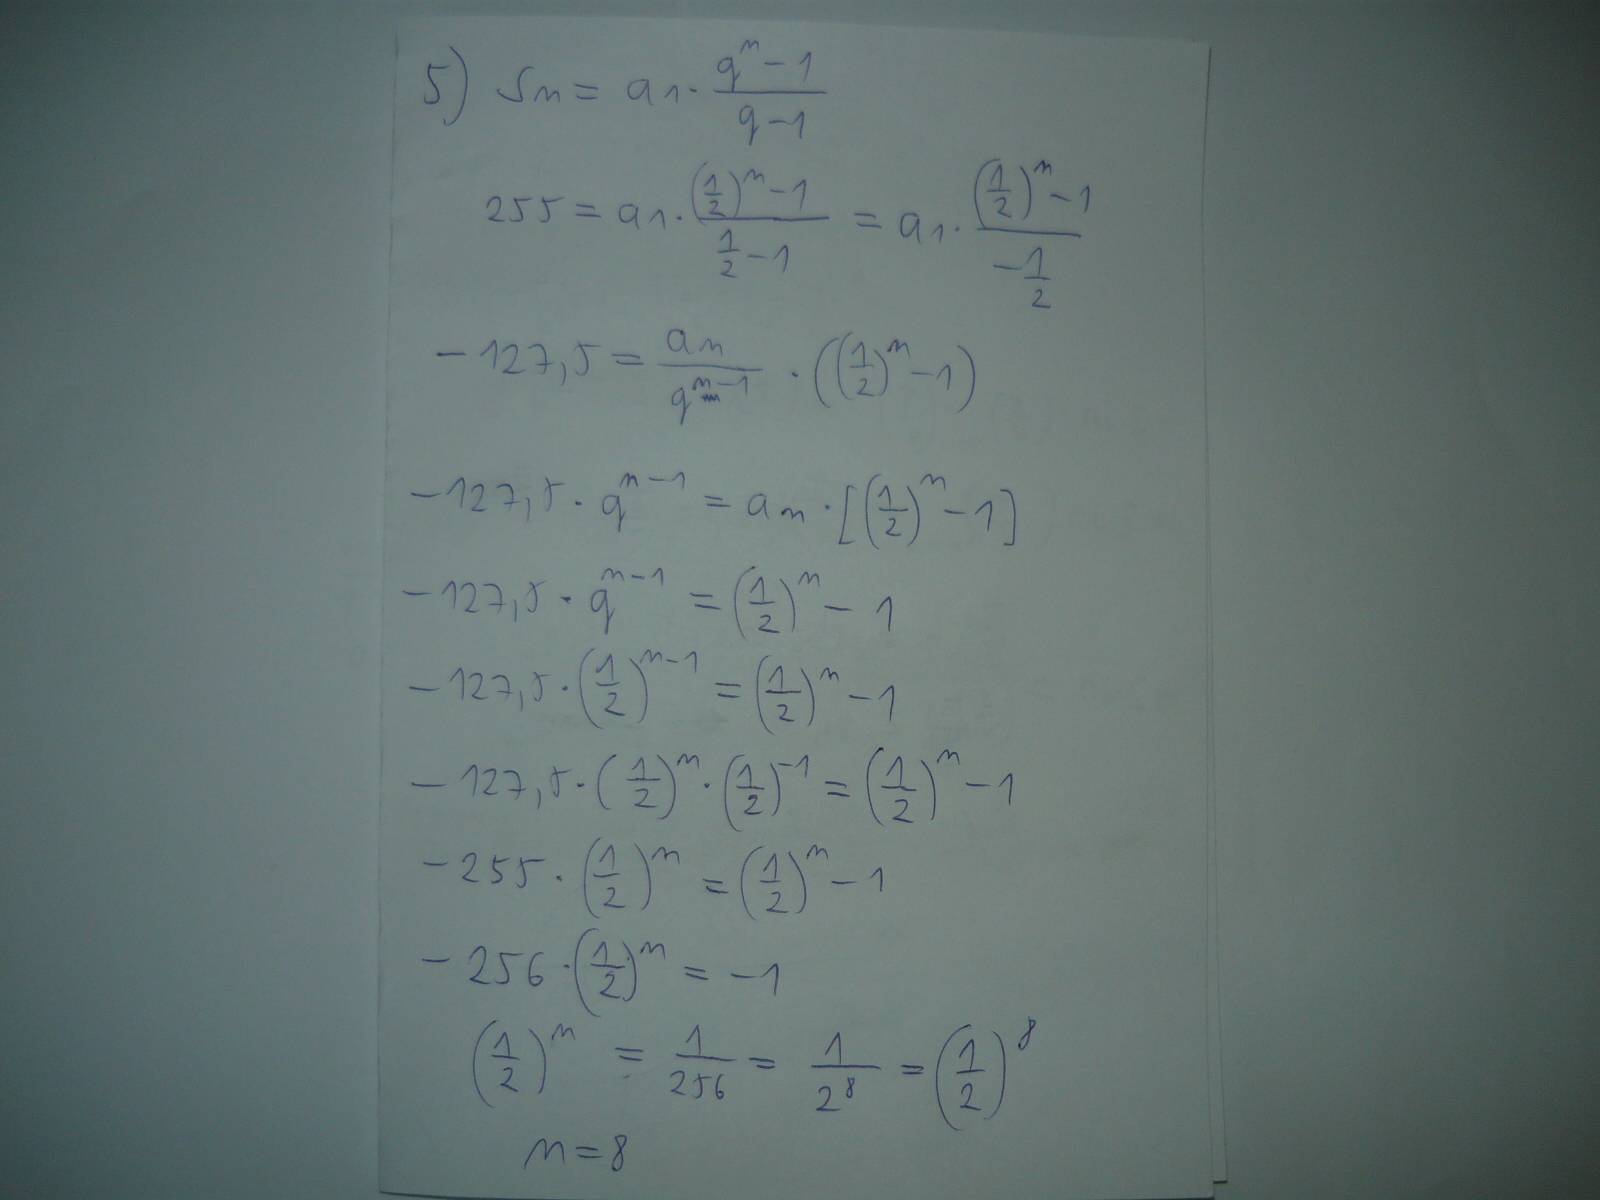 5) Sn = a1 · (q^n − 1)/(q − 1)
255 = a1 · ((1/2)^n − 1)/(1/2 − 1) = a1 · ((1/2)^n − 1)/(−1/2)
−127,5 = an/q^(n−1) · ((1/2)^n − 1)
−127,5 · q^(n−1) = an · [(1/2)^n − 1]
−127,5 · q^(n−1) = (1/2)^n − 1
−127,5 · (1/2)^(n−1) = (1/2)^n − 1
−127,5 · (1/2)^n · (1/2)^(−1) = (1/2)^n − 1
−255 · (1/2)^n = (1/2)^n − 1
−256 · (1/2)^n = −1
(1/2)^n = 1/256 = 1/2^8 = (1/2)^8
n = 8